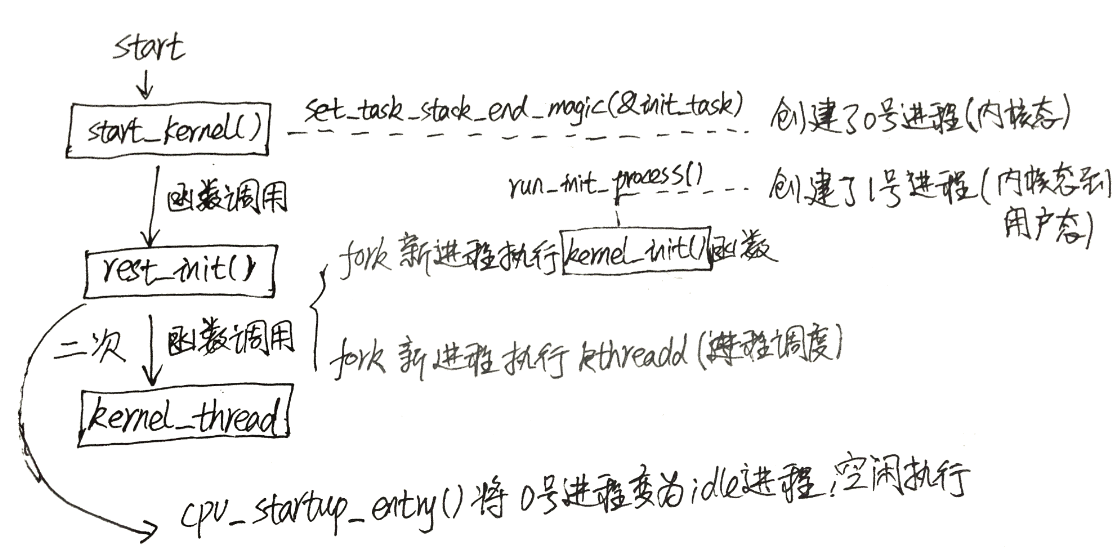 start
start_kernel()
set_task_stack_end_magic(&init_task)
创建了0号进程(内核态)
函数调用
run_init_process()
创建了1号进程(内核态到
用户态)
rest_init()
fork 新进程执行 kernel_init() 函数
二次
函数调用
fork 新进程执行 kthreadd (进程调度)
kernel_thread
cpu_startup_entry() 将0号进程变为idle进程,空闲执行